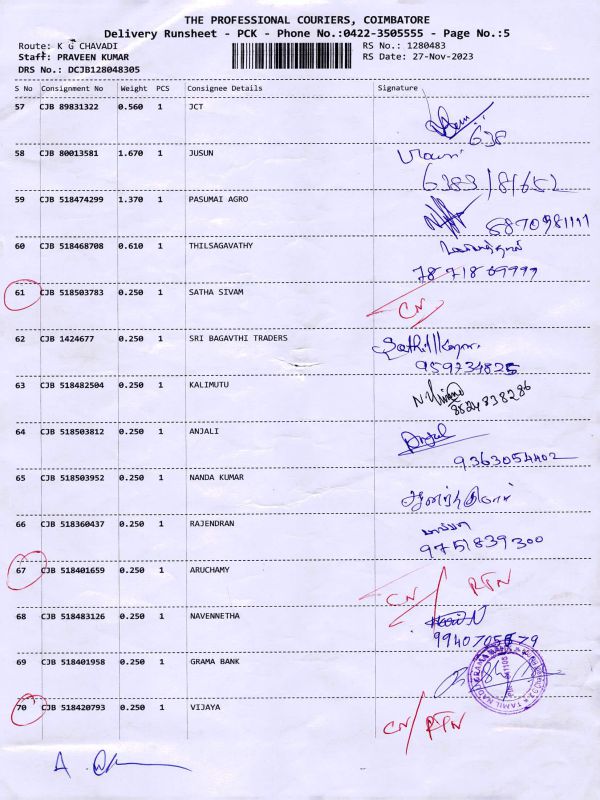 THE PROFESSIONAL COURIERS, COIMBATORE
Delivery Runsheet - PCK - Phone No.:0422-3505555 - Page No.:5
Route: K G CHAVADI
RS No.: 1280483
Staff: PRAVEEN KUMAR
RS Date: 27-Nov-2023
DRS No.: DCJB128048305
S No Consignment No Weight PCS Consignee Details Signature
57 CJB 89831322 0.560 1 JCT
638
58 CJB 80013581 1.670 1 JUSUN
6383181652
59 CJB 518474299 1.370 1 PASUMAI AGRO
60 CJB 518468708 0.610 1 THILSAGAVATHY
61 CJB 518503783 0.250 1 SATHA SIVAM CN
62 CJB 1424677 0.250 1 SRI BAGAVTHI TRADERS
959734825
63 CJB 518482504 0.250 1 KALIMUTU
8524838286
64 CJB 518503812 0.250 1 ANJALI Anjali
9363054402
65 CJB 518503952 0.250 1 NANDA KUMAR
66 CJB 518360437 0.250 1 RAJENDRAN
9751839300
67 CJB 518401659 0.250 1 ARUCHAMY CN/RTN
68 CJB 518483126 0.250 1 NAVENNETHA
69 CJB 518401958 0.250 1 GRAMA BANK
70 CJB 518420793 0.250 1 VIJAYA CN/RTN